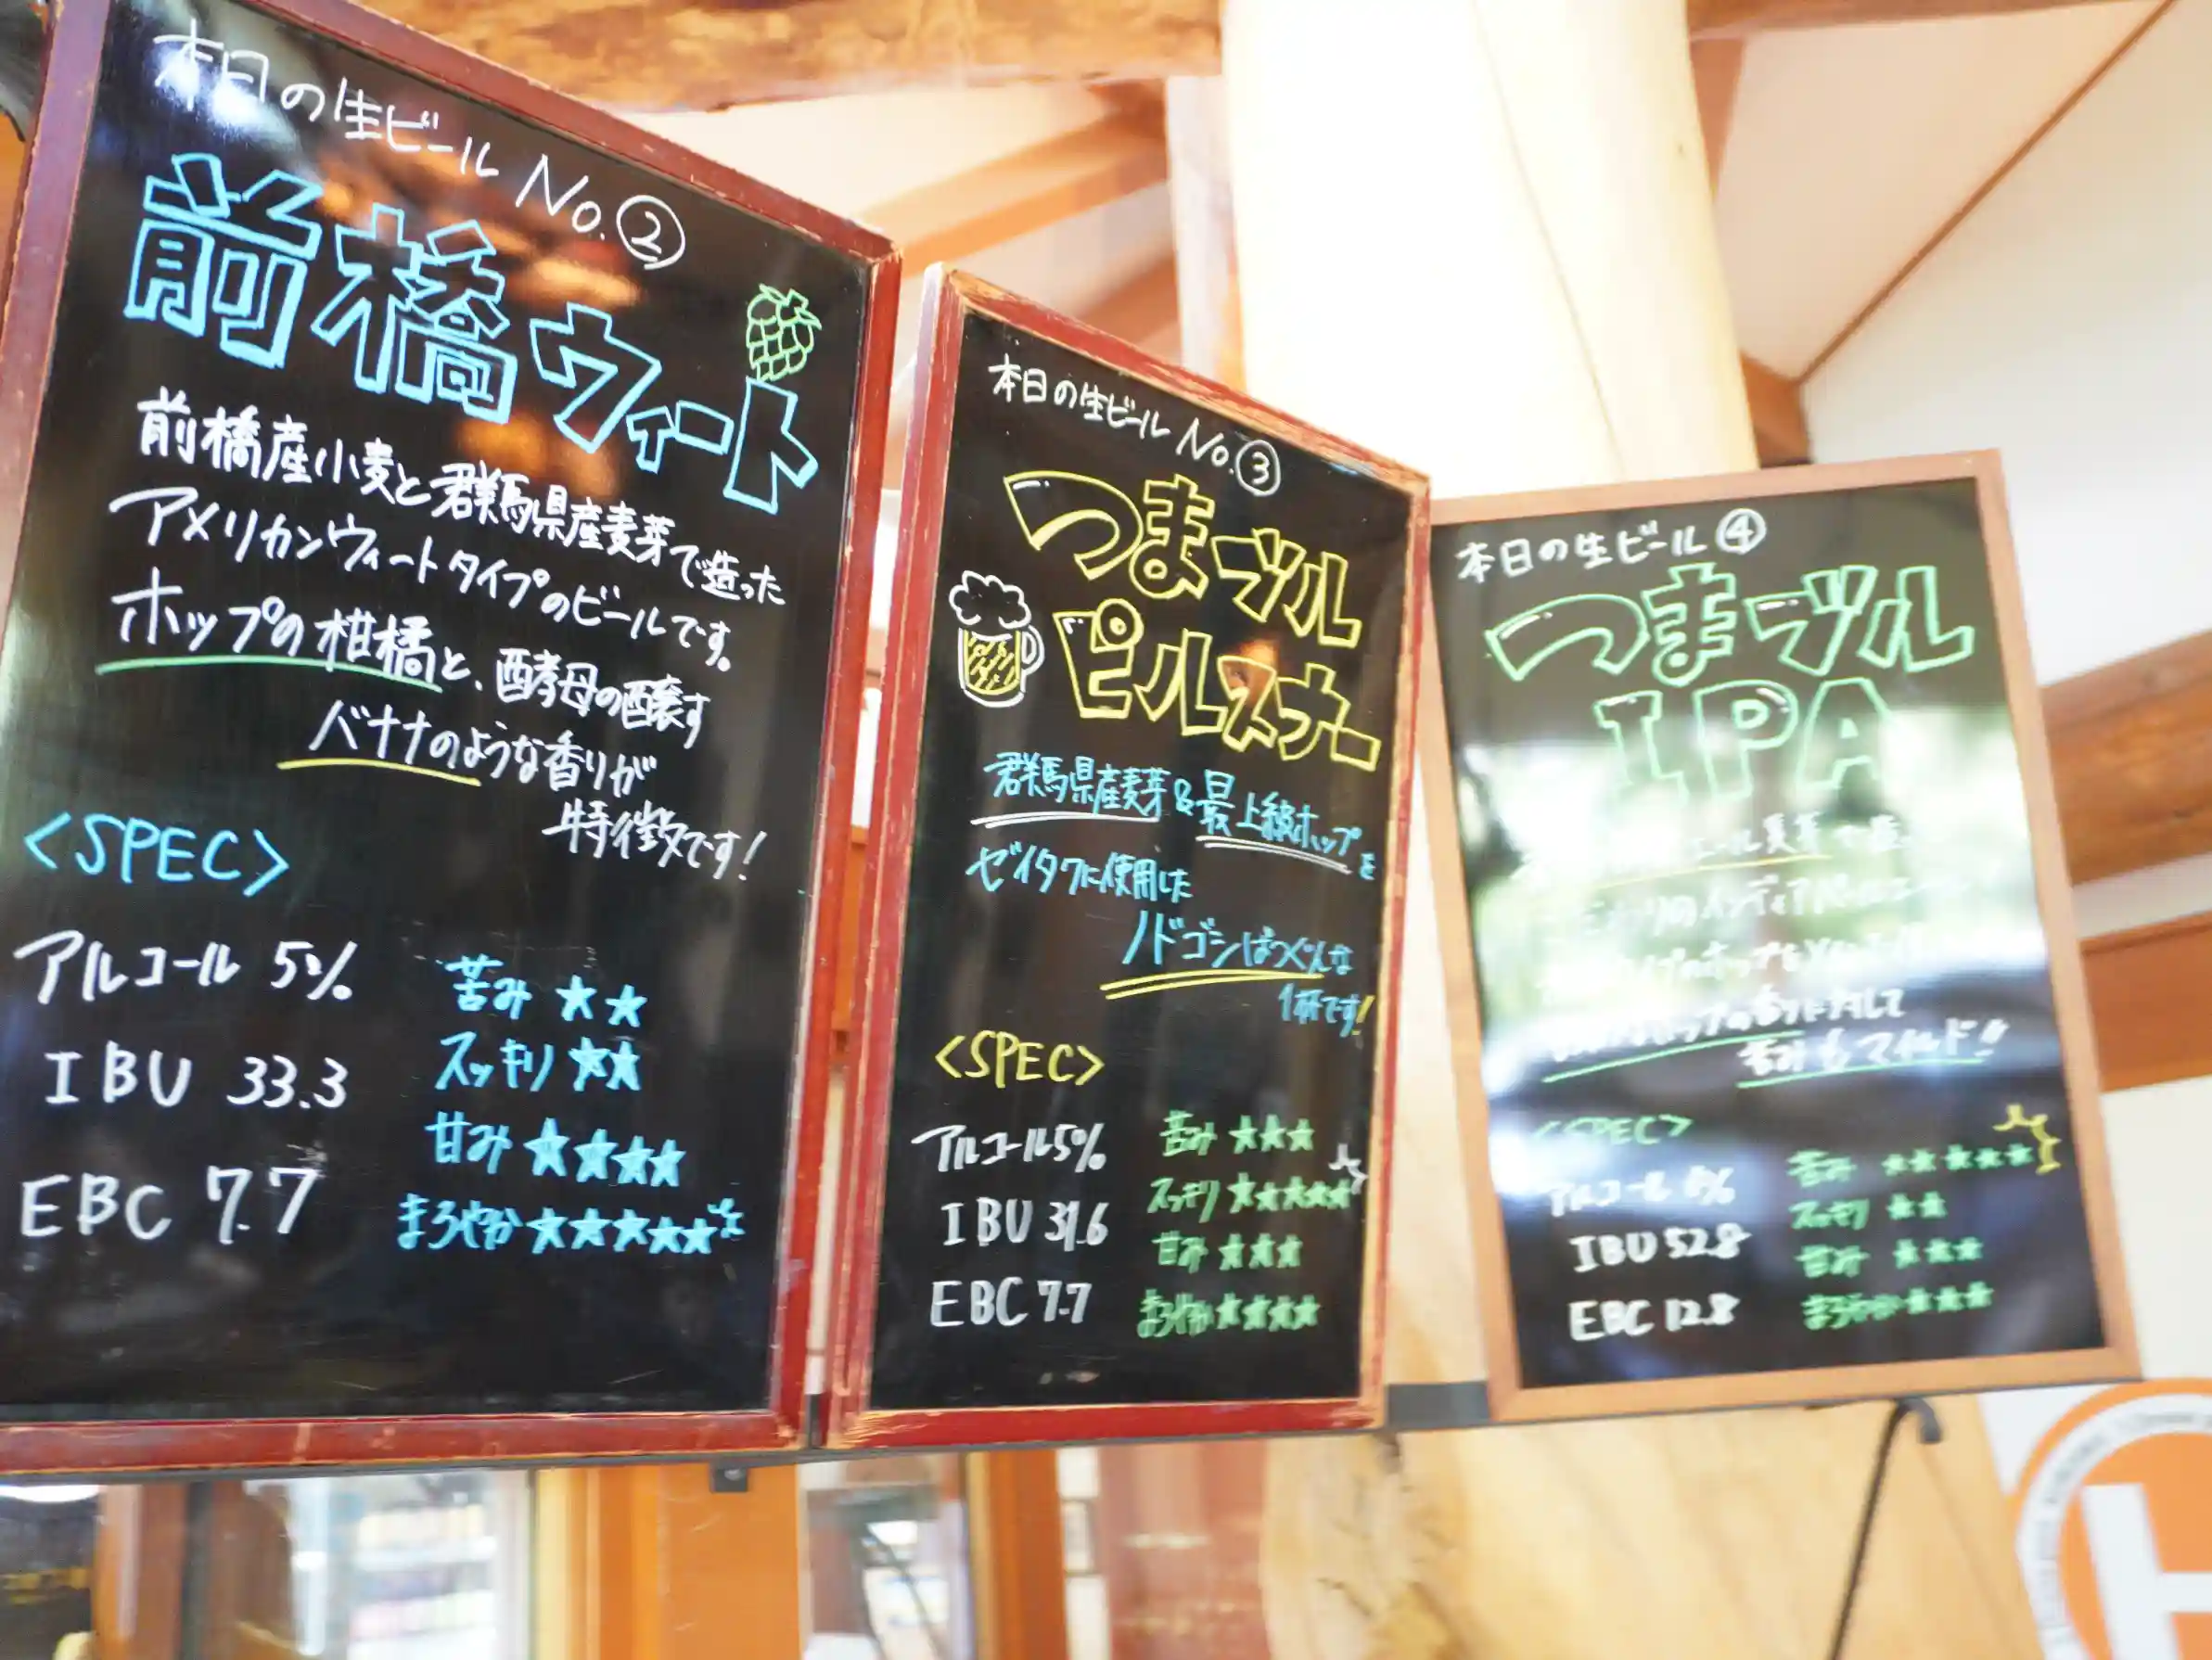 本日の生ビール No.②
前橋ウィート
前橋産小麦と群馬県産麦芽で造った
アメリカンウィートタイプのビールです。
ホップの柑橘と、酵母の醸す
バナナのような香りが
特徴です!
<SPEC>
アルコール 5%
IBU 33.3
EBC 7.7
苦み ★★
スッキリ ★★
甘み ★★★★
まろやか ★★★★★
本日の生ビール No.③
つまブル
ピルスナー
群馬県産麦芽&最上級ホップを
ゼイタクに使用した
ノドゴシばつぐんな
1杯です!
<SPEC>
アルコール5%
IBU 31.6
EBC 7.7
苦み ★★★
スッキリ ★★★★★
甘み ★★★
まろやか ★★★★
本日の生ビール④
つまブル
IPA
苦みもマイルド!!
<SPEC>
アルコール
IBU 52.8
EBC 12.8
苦み ★★★★★
スッキリ ★★
甘み ★★★
まろやか ★★★
H